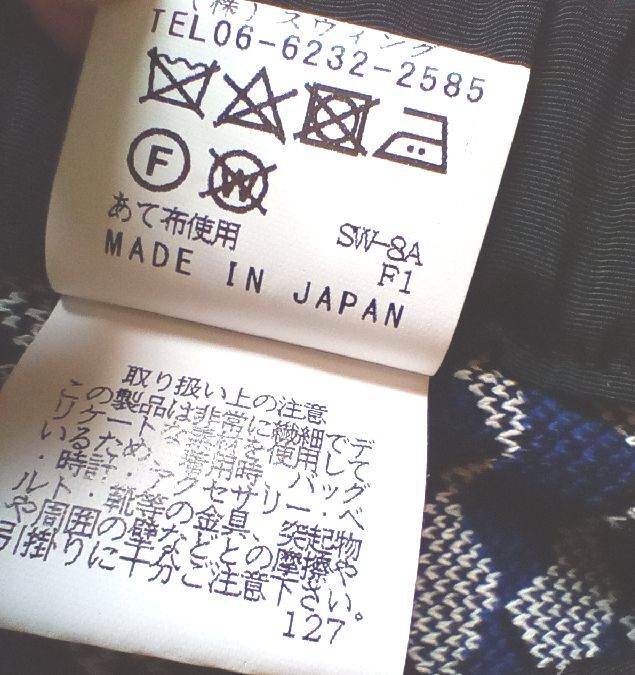 (株)スウィング
TEL06-6232-2585
F
W
あて布使用
SW-8A
F1
MADE IN JAPAN
取り扱い上の注意
この製品は非常に繊細でデ
リケートな素材を使用して
いるため、着用時、バッグ
・時計・アクセサリー・ベ
ルト・靴等の金具、突起物
や周囲の壁などとの摩擦や
引掛りに十分ご注意下さい。
127